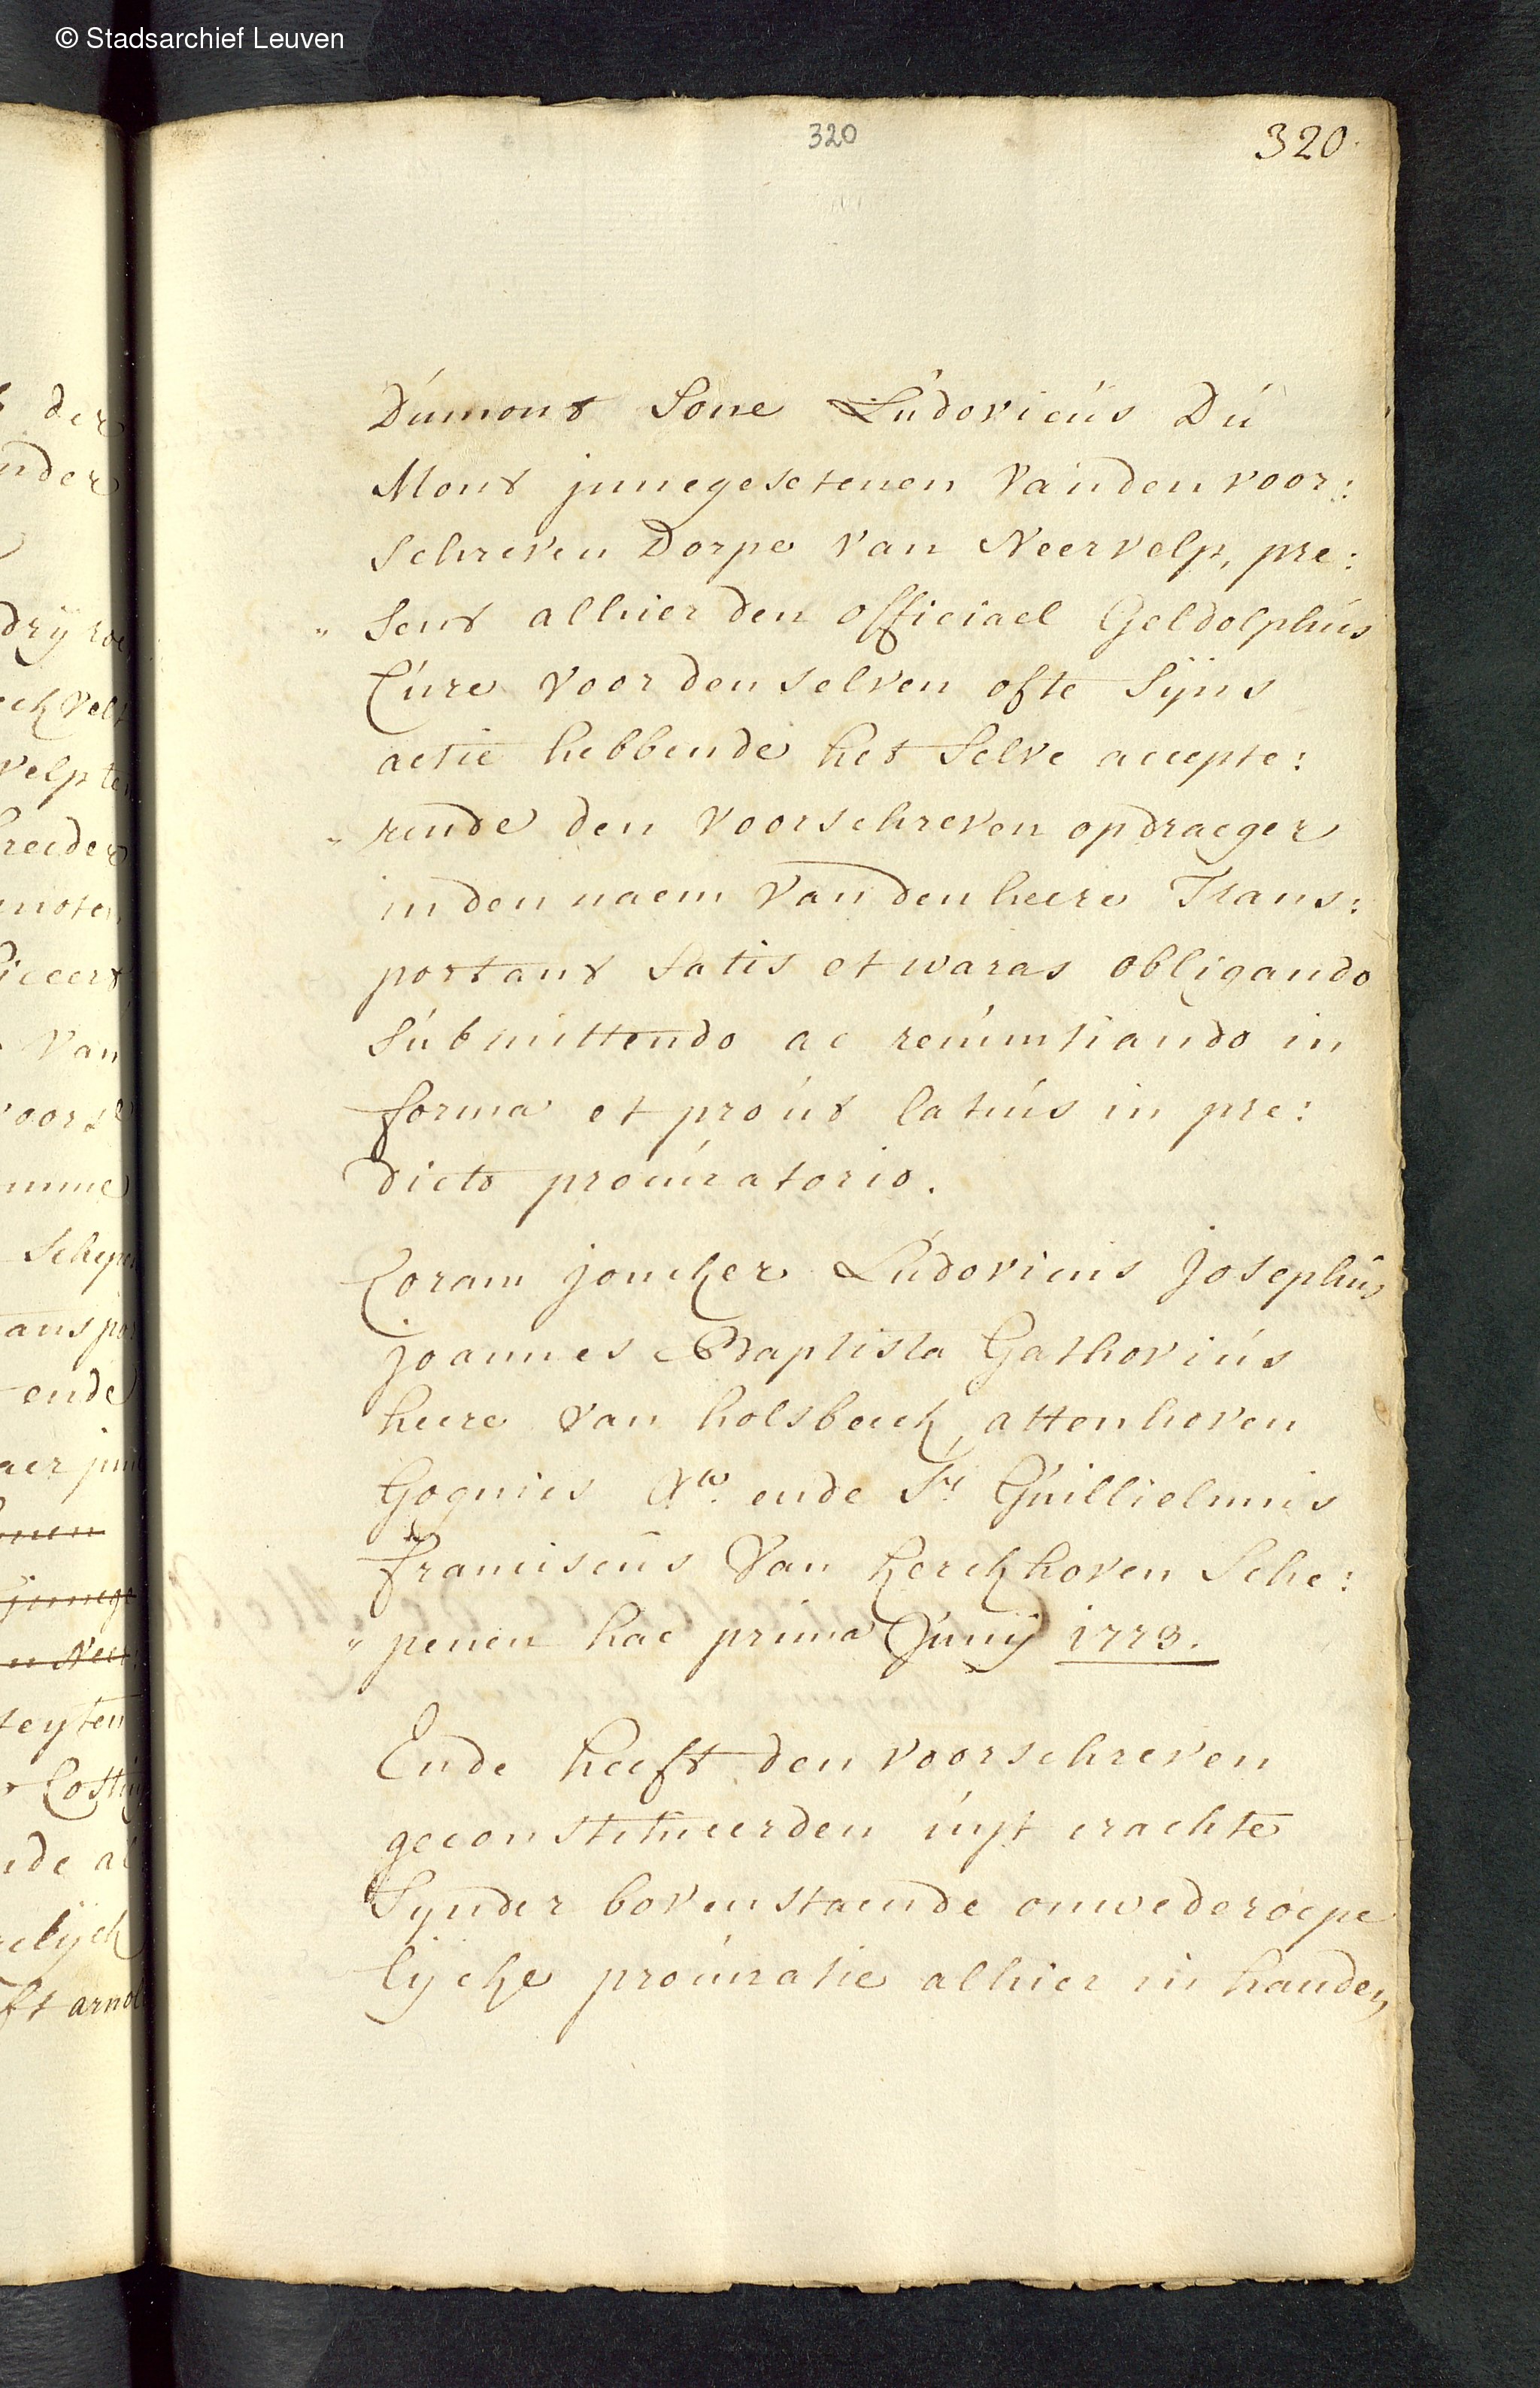 © Stadsarchief Leuven
320
320
Dúmont Sone Lúdovicús Dú
Mont jnnegesetenen van den voor:
schreven Dorpe van Neervelp, pre:
" sent alhier den officiael Geldolphús
Cúre voor den selven ofte sijns
actie hebbende het selve accepte:
" rende den voorschreven opdraeger
in den naem van den heere Trans:
portant satis et waras obligando
súbmittendo ac renúntiando in
forma et proút latiús in pre:
dicto procúratorio.
Coram joncker Lúdovicús Josephús
joannes Baptista Gathoviús
heere van holsbeeck, attenhoven
Gognies &ca. ende Sr. Gúillielmús
franciscús van kerckhoven Sche:
" penen hac prima Junij 1773.
Ende heeft den voorschreven
geconstitueerden úijt crachte
Sijnder bovenstaende onwederoepe
lijcke procúratie alhier in handen
der
nder
drij roe
velp
breeder
van
voors
ende
seyten
lijck